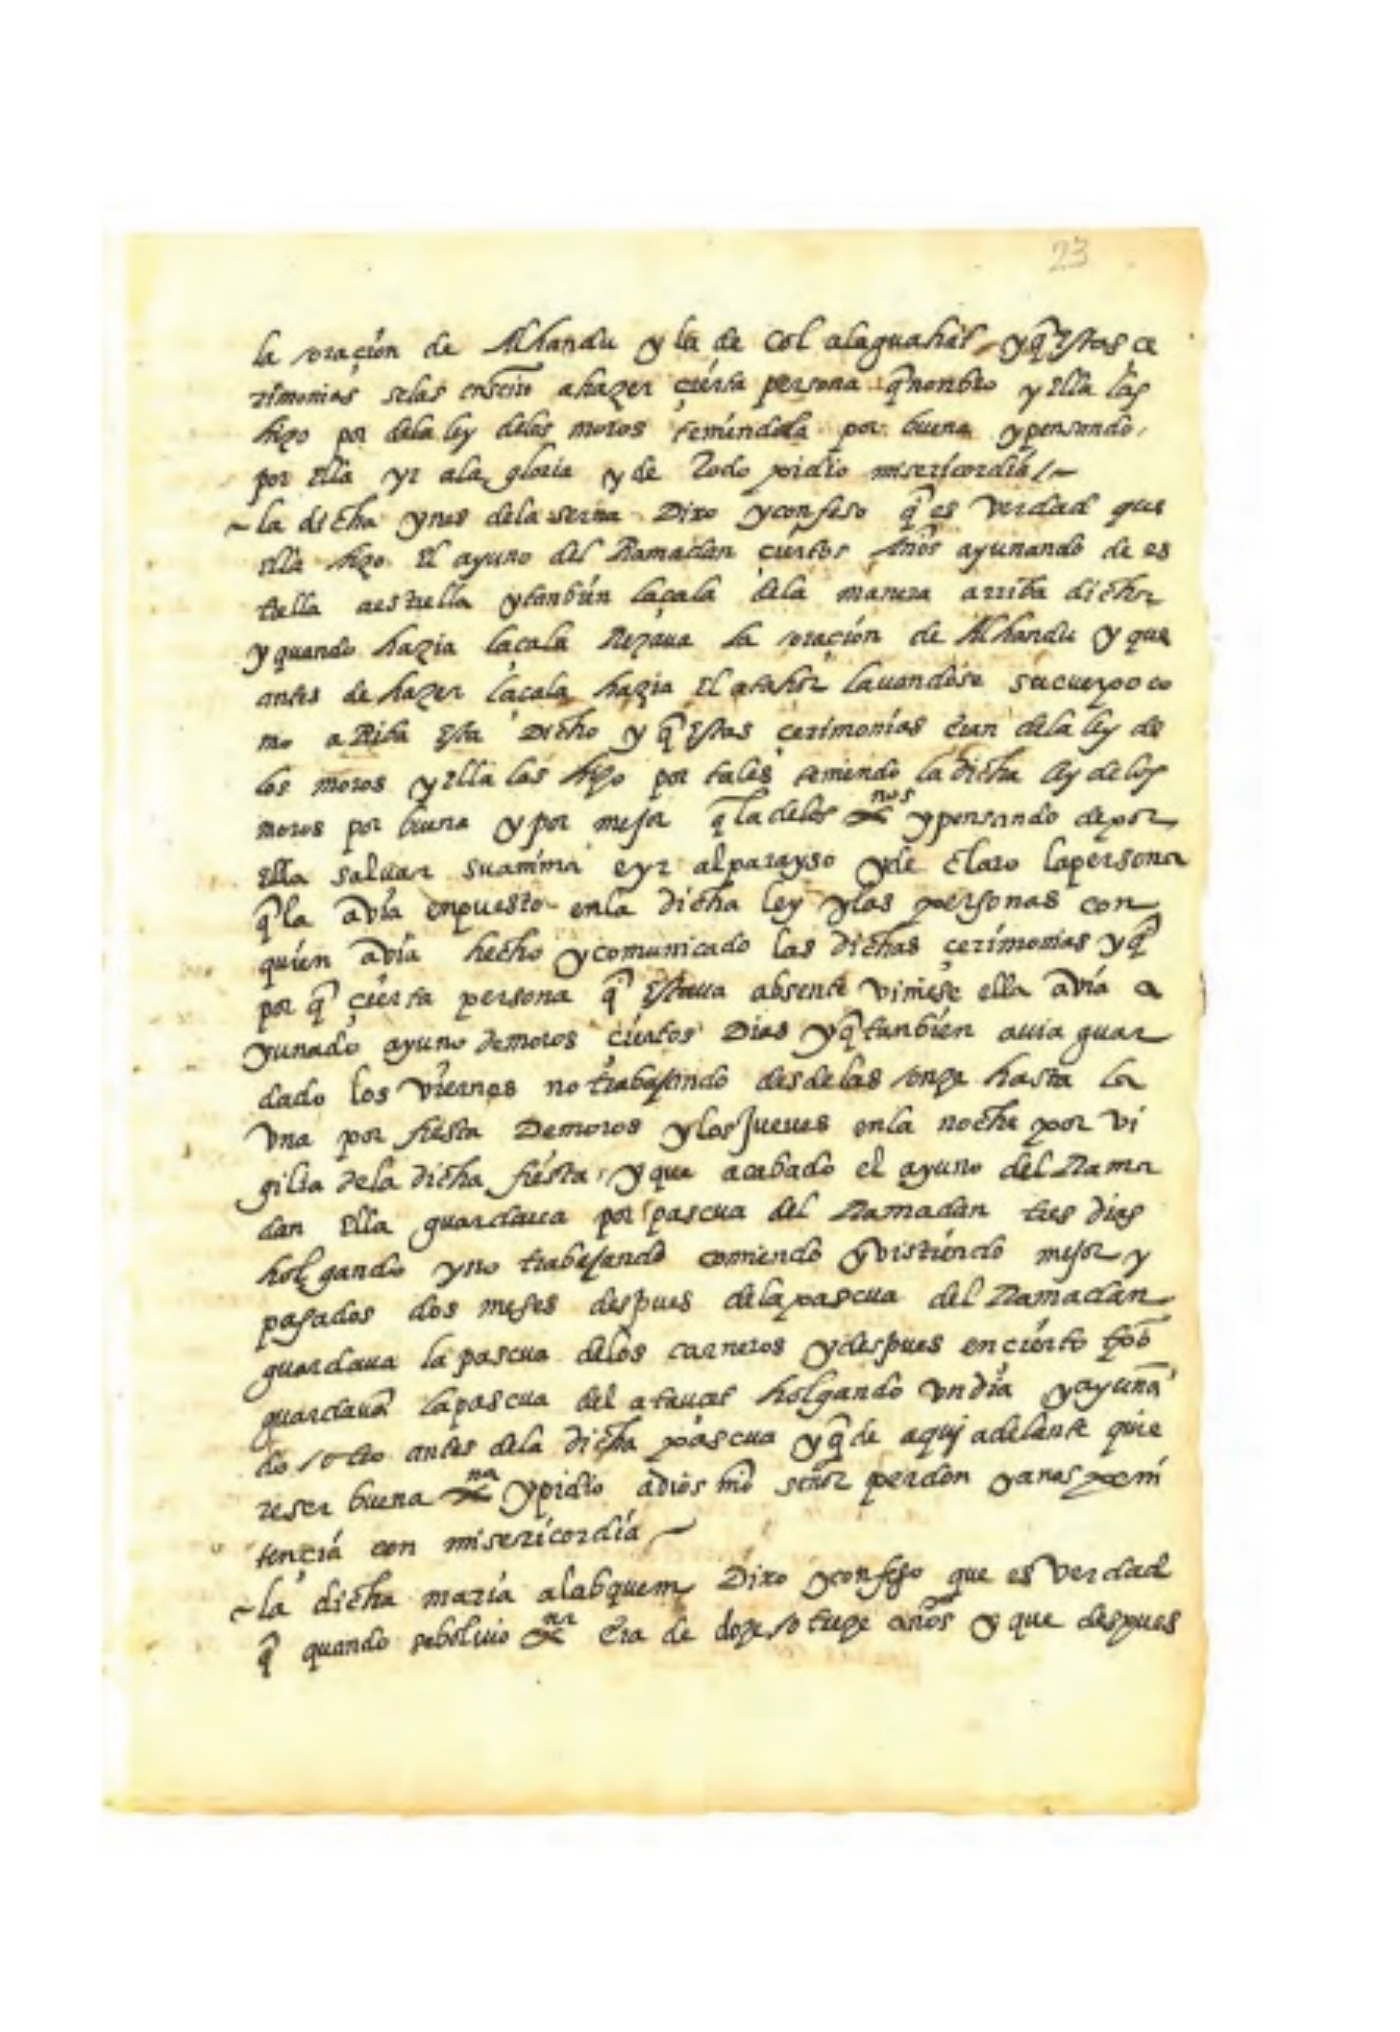 23
la oraçion de Alhandu y la de Col alaguahat y q̃ estas ce
rimonias selas enseño a hazer çierta persona q̃ nonbro y ella las
hizo por dela ley delos moros teniendola por buena y pensando
por ella yr ala gloria y de todo pidio misericordia /~
~ la dicha ynes dela serna Dixo y confeso q̃ es verdad que
ella hizo el ayuno del Ramadan çiertos Años ayunando de es
trella aestrella y tanbien laçala dela manera arriba dicha
y quando hazia laçala Rezaua la oraçion de Alhandu y que
antes de hazer laçala hazia el atahor lauandose su cuerpo co
mo aRiba esta Dicho y q̃ estas çerimonias eran dela ley de
los moros y ella las hizo por tales teniendo la dicha ley de los
moros por buena y por mejor q̃ la delos xnos y pensando de por
ella saluar suanima e yr al parayso y de claro la persona
q̃ la avia enpuesto enla dicha ley y las personas con
quien avia hecho y comunicado las dichas çerimonias y q̃
por q̃ çierta persona q̃ estaua absente viniese ella avia a
yunado ayuno demoros çiertos Dias y q̃ tanbien auia guar
dado los viernes no trabajando desdelas onze hasta la
vna por fiesta Demoros y los Jueues enla noche por vi
gilia dela dicha fiesta y que acabado el ayuno del Rama
dan ella guardaua por pascua del Ramadan tres dias
holgando y no trabajando comiendo y vistiendo mejor y
pasados dos meses despues dela pascua del Ramadan
guardaua la pascua delos carneros y despues en çierto tpõ
guardauã la pascua del ataucer holgando vn dia y ayunã
do otro antes dela dicha pascua y q̃ de aqui adelante quie
re ser buena xna y pidio adios nr̃o señor perdon y anos peni
tençia con misericordia ~
~ la dicha maria alabquem Dixo y confeso que es verdad
q̃ quando se boluio xna Era de doze o treze años y que despues